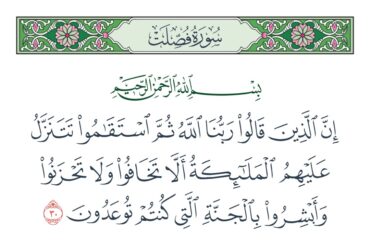 سُورَةُ فُصِّلَتْ
بِسْمِ ٱللَّهِ ٱلرَّحْمَٰنِ ٱلرَّحِيمِ
إِنَّ ٱلَّذِينَ قَالُوا۟ رَبُّنَا ٱللَّهُ ثُمَّ ٱسْتَقَٰمُوا۟ تَتَنَزَّلُ
عَلَيْهِمُ ٱلْمَلَٰٓئِكَةُ أَلَّا تَخَافُوا۟ وَلَا تَحْزَنُوا۟
وَأَبْشِرُوا۟ بِٱلْجَنَّةِ ٱلَّتِى كُنتُمْ تُوعَدُونَ ٣٠